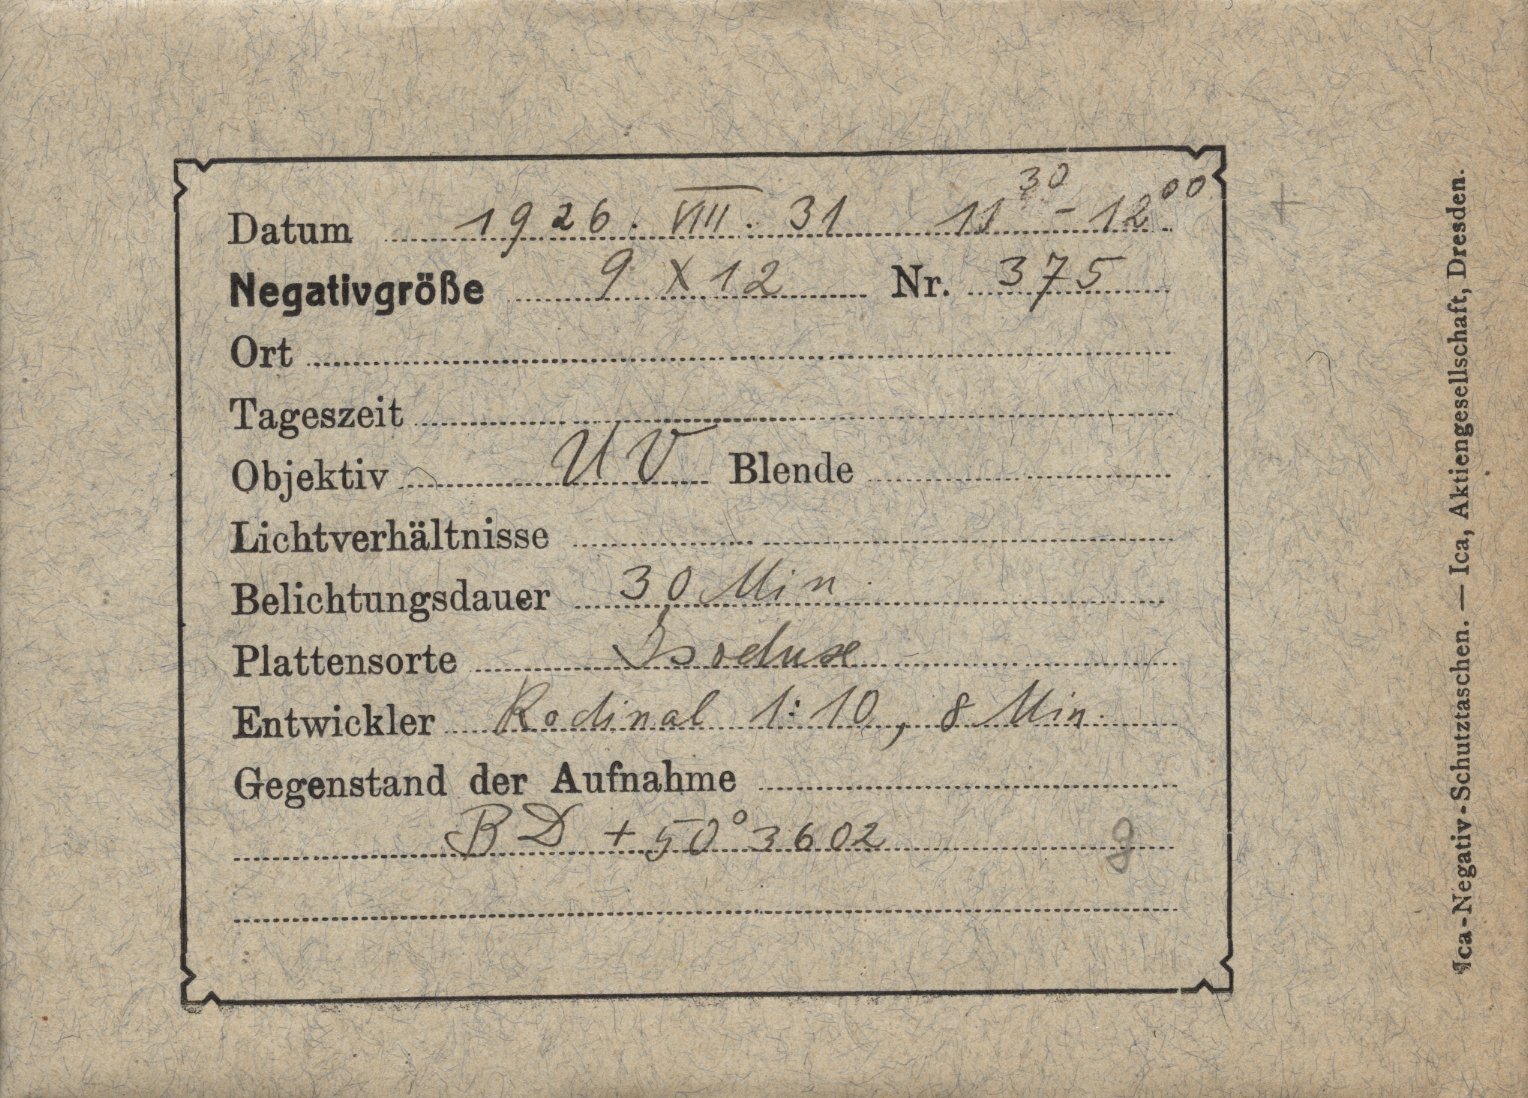 Datum 1926. VIII. 31 11 30 - 12 00
Negativgröße 9 X 12 Nr. 375
Ort
Tageszeit
Objektiv UV Blende
Lichtverhältnisse
Belichtungsdauer 30 Min.
Plattensorte
Entwickler Rodinal 1:10, 8 Min.
Gegenstand der Aufnahme
BD + 50° 3602
Ica-Negativ-Schutztaschen. — Ica, Aktiengesellschaft, Dresden.